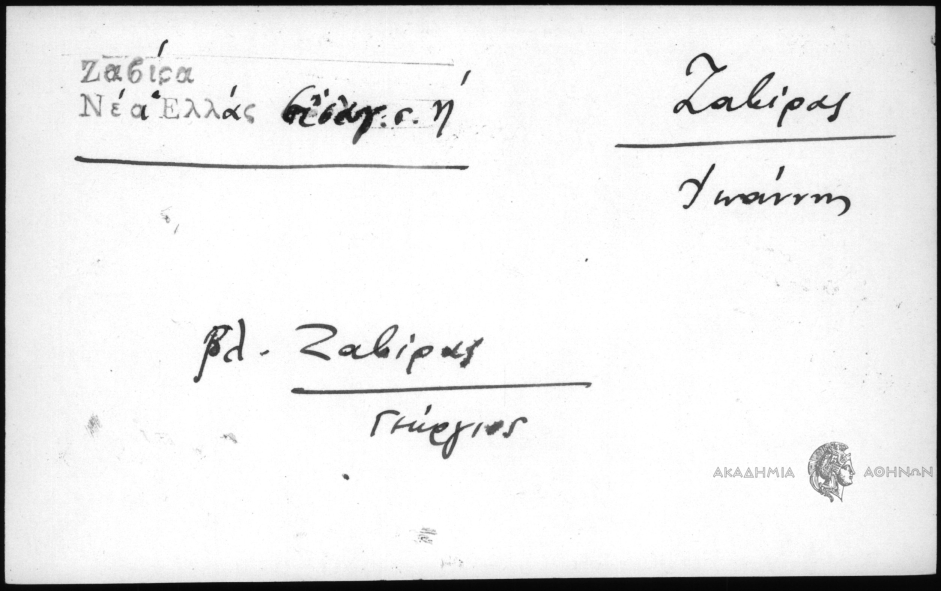 Ζαβίρα
Νέα Ἑλλάς εἰσαγ. σ. ή
Ζαβίρας
Ἰωάννης
βλ. Ζαβίρας
Γεώργιος
ΑΚΑΔΗΜΙΑ ΑΘΗΝΩΝ